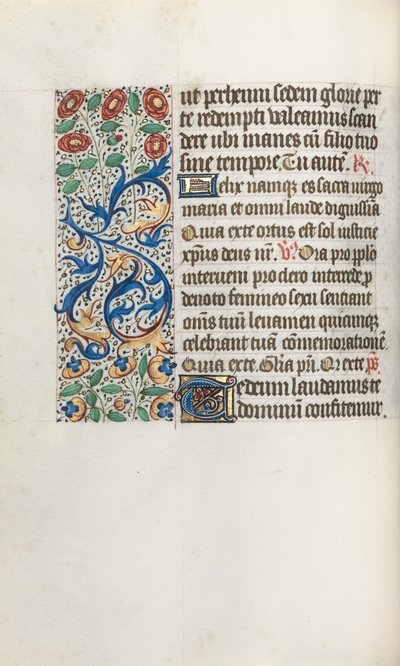 ut perhenni sedem glorie per
te redempti valeamus scan
dere ubi manes cū filio tuo
sine tempore. Tu autē. R.
Felix namque es sacra virgo
maria et omni laude dignissīa
Quia ex te ortus est sol insticie
xp̄us deus nr̄. V. Ora pro pplō
interveni pro clero intercede p
devoto femineo sexu sentiant
om̄s tuū levamen quicumque
celebrant tuā cōmemorationē.
Quia ex te. Glīa pr̄i. Qr ex te. ps̄
Te deum laudamus te
dominū confitemur